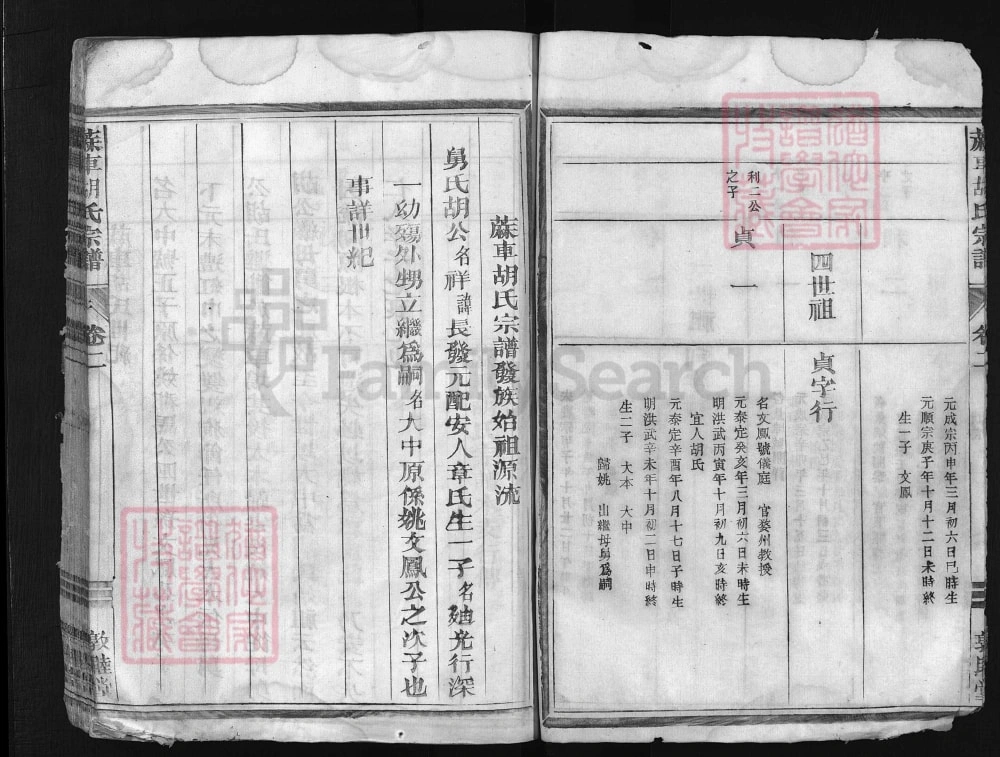 蔴車胡氏宗譜
卷二
元成宗丙申年三月初六日巳時生
元順宗庚子年十月十二日未時終
生一子 文鳳
四世祖 貞字行
利二公之子
貞一
名文鳳號儀庭 官婺州教授
元泰定癸亥年三月初六日未時生
明洪武丙寅年十月初九日亥時終
宜人胡氏
元泰定辛酉年八月十七日子時生
明洪武辛未年十月初二日申時終
生二子 大本 大中
歸姚 出繼母舅為嗣
蔴車胡氏宗譜發族始祖源流
舅氏胡公名祥諱長發元配安人章氏生一子名廸光行深
一幼殤外甥立繼為嗣名大中原係姚文鳳公之次子也
事詳世紀
蔴車胡氏宗譜
卷二
敦睦堂
FamilySearch